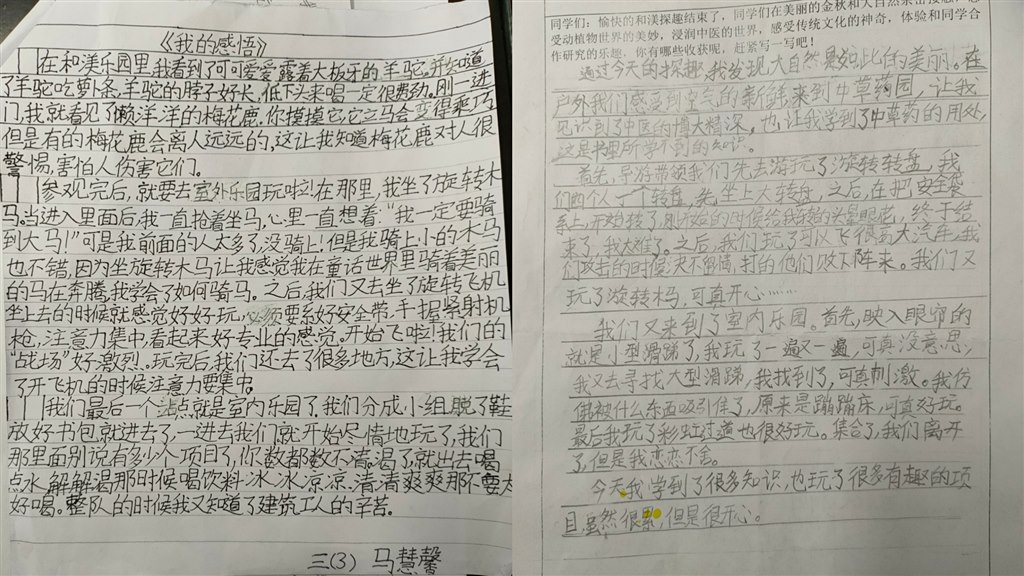 《我的感悟》
在和渼乐园里,我看到了可可爱爱露着大板牙的羊驼。并知道
了羊驼吃萝卜条,羊驼的脖子好长,低下头来喝一定很费劲。刚一进
门,我就看见了懒洋洋的梅花鹿。你摸摸它,它立马会变得乘巧
但是有的梅花鹿会离人远远的,这让我知道梅花鹿对人很
警惕,害怕人伤害它们。
参观完后,就要去室外乐园玩啦!在那里,我坐了旋转木
马。当进入里面后,我一直抢着坐马,心里一直想着:“我一定要骑
到大马!”可是我前面的人太多了,没骑上!但是我骑上小的木马
也不错,因为坐旋转木马让我感觉我在童话世界里骑着美丽
的马在奔腾,我学会了如何骑马。之后,我们又去坐了旋转飞机
坐上去的时候就感觉好好玩,必须要系好安全带,手握紧射机
枪,注意力集中,看起来好专业的感觉。开始飞啦!我们的
“战场”好激烈。玩完后,我们还去了很多地方,这让我学会
了开飞机的时候注意力要集中。
我们最后一个站点就是室内乐园了,我们分成小组,脱了鞋
放好书包就进去了,一进去我们就开始尽情地玩了,我们
那里面别说有多少个项目了,你数都数不清。渴了就出去喝
点水,解解渴那时候喝饮料冰冰凉凉,清清爽爽那不要太
好喝。整队的时候我又知道了建筑工人的辛苦。
三(3) 马慧馨
同学们:愉快的和渼探趣结束了,同学们在美丽的金秋和大自然亲密接触,感
受动植物世界的美妙,浸润中医的世界,感受传统文化的神奇,体验和同学合
作研究的乐趣,你有哪些收获呢,赶紧写一写吧!
通过今天的探趣,我发现大自然是如此的美丽。在
户外我们感受到空气的新鲜来到中草药园,让我
见识到了中医的博大精深。也让我学到了中草药的用处,
这是书里所学不到的知识。
首先,导游带领我们先去游玩了旋转转盘,我
们四个人一个转盘,先坐上大转盘,之后,在把安全带
系上,开始转了,刚开始的时候给我转的头晕眼花,终于结
束了,我太难了。之后,我们玩了可以飞很高大汽车,我
们攻击的时候,关不留情,打的他们败下阵来。我们又
玩了旋转木马,可真开心……
我们又来到了室内乐园。首先,映入眼帘的
就是小型滑蹄了,我玩了一遍又一遍,可真没意思,
我又去寻找大型滑蹄,我找到了,可真刺激。我仿
佛被什么东西吸引住了,原来是蹦蹦床,可真好玩。
最后我玩了彩虹过道也很好玩。集合了,我们离开
了,但是我恋恋不舍。
今天我学到了很多知识,也玩了很多有趣的项
目,虽然很累,但是很开心。